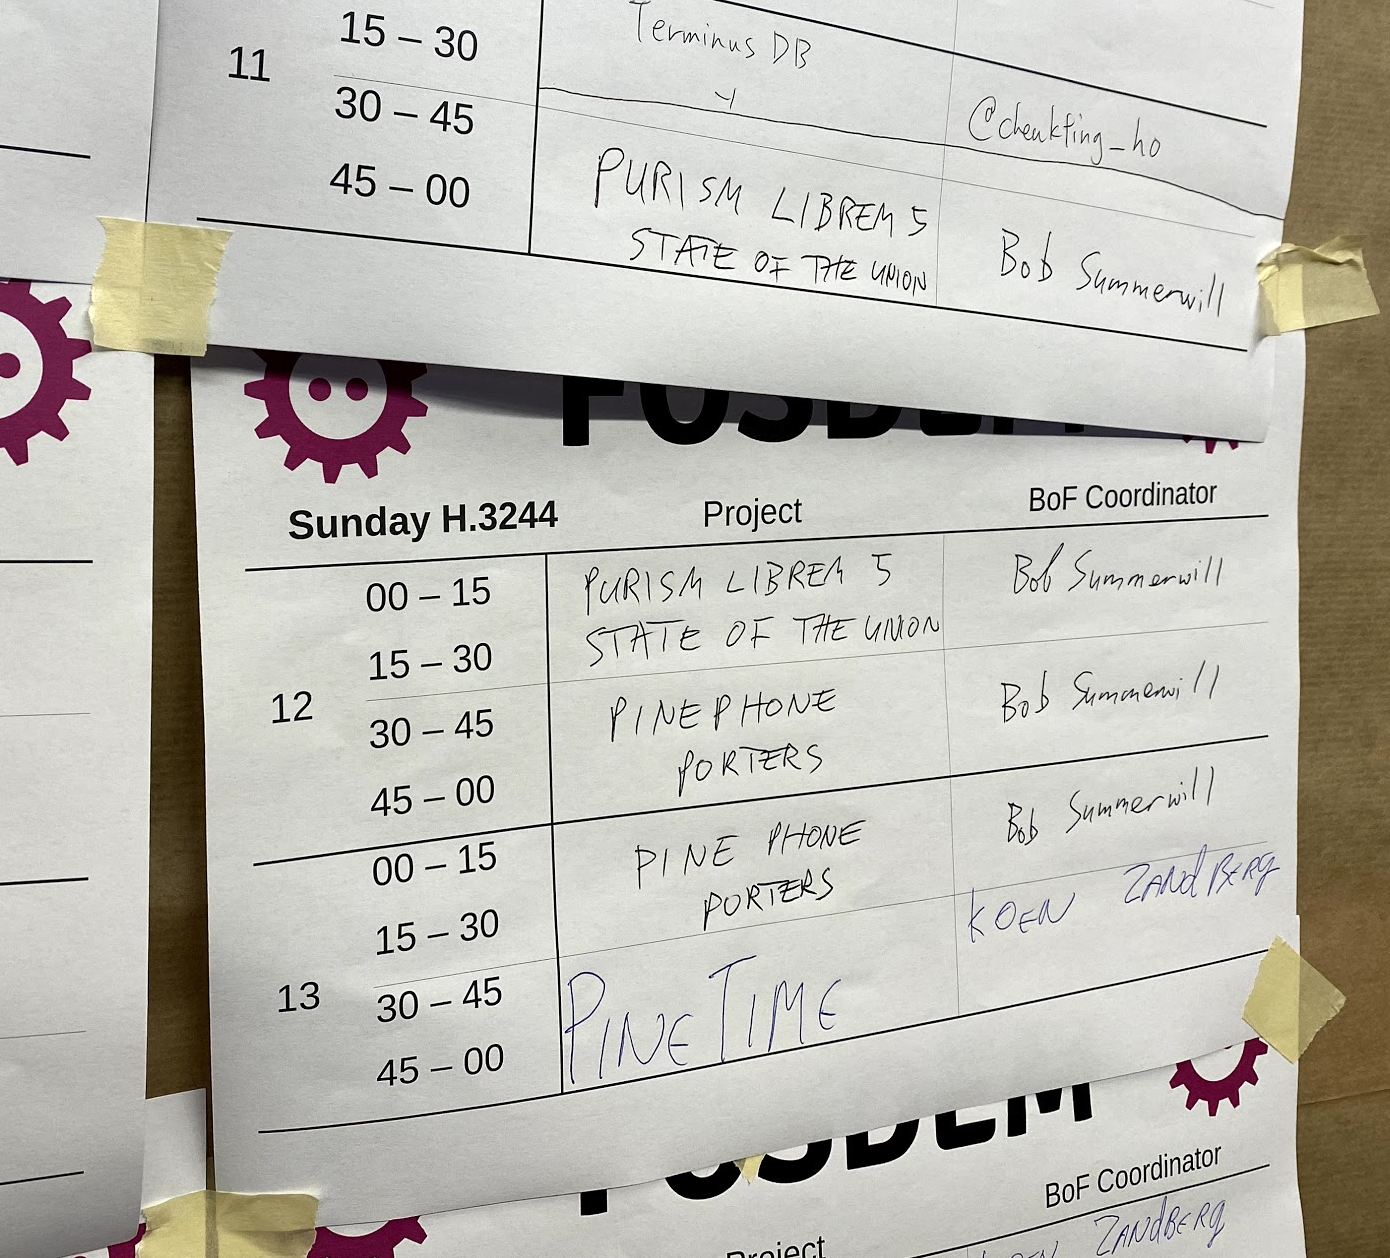 15 – 30
Terminus DB
11
30 – 45
@cheukting_ho
45 – 00
PURISM LIBREM 5
STATE OF THE UNION
Bob Summerwill
FOSDEM
Sunday H.3244 Project BoF Coordinator
00 – 15 PURISM LIBREM 5 Bob Summerwill
15 – 30 STATE OF THE UNION
12
30 – 45 PINEPHONE Bob Summerwill
45 – 00 PORTERS
00 – 15 PINE PHONE Bob Summerwill
15 – 30 PORTERS KOEN ZANDBERG
13
30 – 45 PINETIME
45 – 00
FOSDEM
Project BoF Coordinator
KOEN ZANDBERG